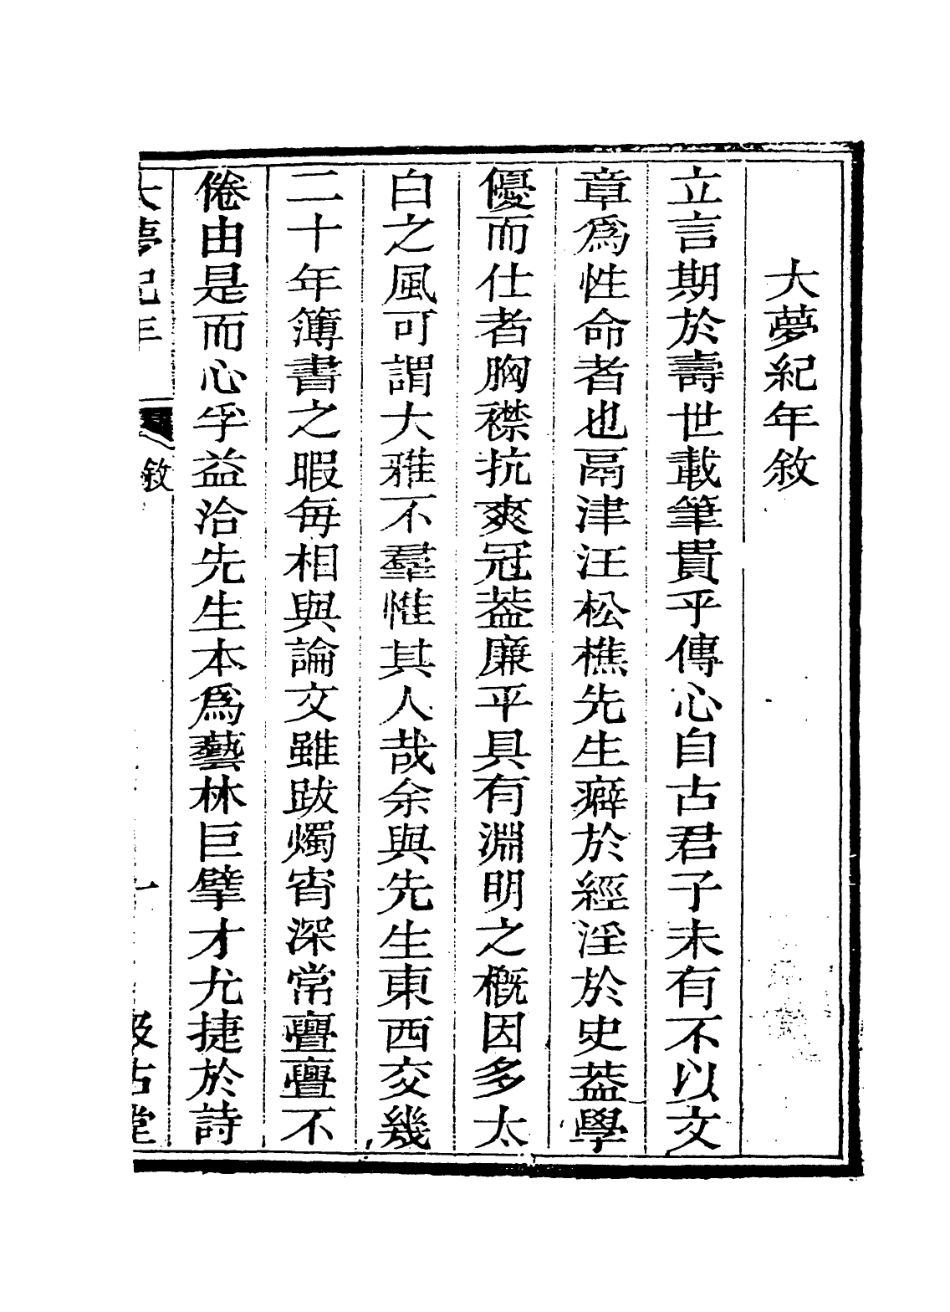 大夢紀年敘
立言期於壽世載筆貴乎傳心自古君子未有不以文
章爲性命者也鬲津汪松樵先生癖於經淫於史葢學
優而仕者胸襟抗爽冠葢廉平具有淵明之概因多太
白之風可謂大雅不羣惟其人哉余與先生東西交幾
二十年簿書之暇每相與論文雖跋燭宵深常亹亹不
倦由是而心孚益洽先生本爲藝林巨擘才尤捷於詩
大夢紀年 敘 一 汲古堂